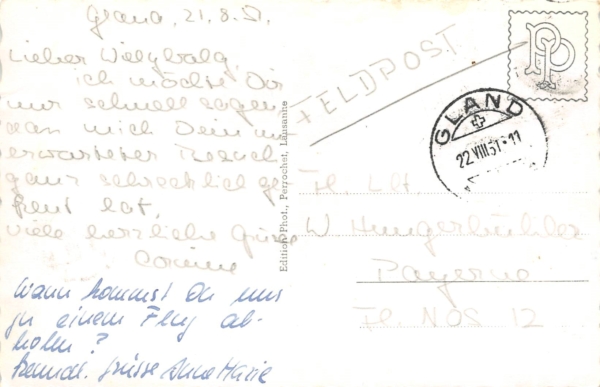 Gland, 21.8.51.
Lieber Willybalg,
ich möchte Dir
nur schnell sagen
dass mich Dein un
erwarteter Besuch
ganz schrecklich ge
freut hat,
viele herzliche Grüsse
Corinne
Wann kommst Du uns
zu einem Flug ab-
holen?
freundl. Grüsse Anne Marie
Edition Phot., Perrochet, Lausanne
+ FELDPOST
PP
GLAND
22.VIII.51.-11
Fl. Lt.
W Hungerbühler
Payerne
Fl NOS 12